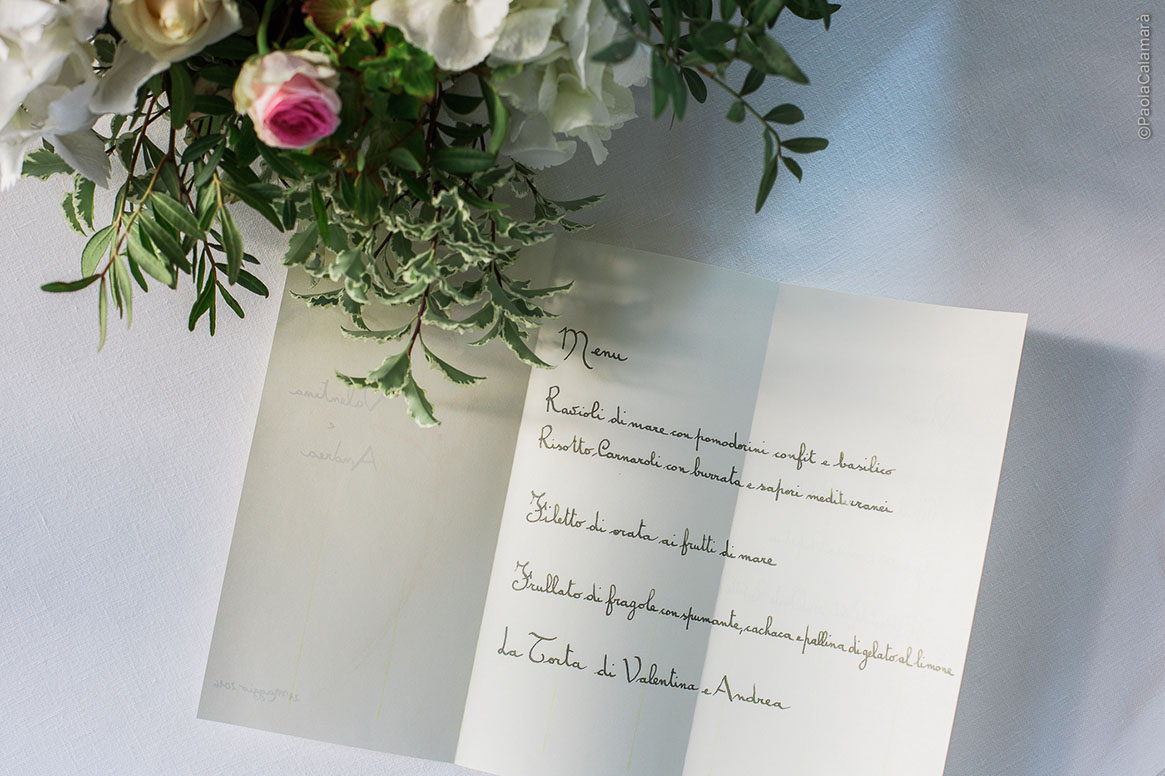 ©PaolaCalamarà
Valentina
e
Andrea
maggio
Menu
Ravioli di mare con pomodorini confit e basilico
Risotto Carnaroli con burrata e sapori mediterranei
Filetto di orata ai frutti di mare
Frullato di fragole con spumante, cachaca e pallina di gelato al limone
La Torta di Valentina e Andrea